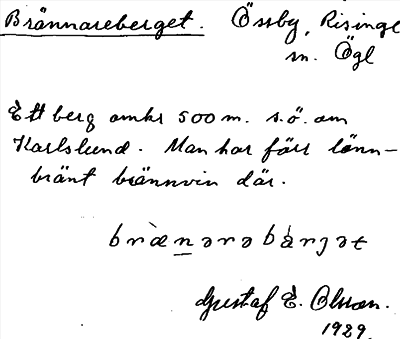 Brännareberget. Össby, Risinge
sn. Ögl
Ett berg omkr 500 m. s.ö. om
Karlslund. Man har förr lönn-
bränt brännvin där.
bræ̀nərəbàrjət
Gustaf E. Olsson.
1929.